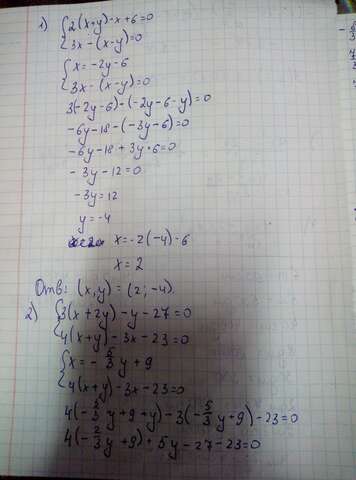 1) {2(x+y)-x+6=0
{3x-(x-y)=0
{x=-2y-6
{3x-(x-y)=0
3(-2y-6)-(-2y-6-y)=0
-6y-18-(-3y-6)=0
-6y-18+3y+6=0
-3y-12=0
-3y=12
y=-4
x=-2(-4)-6
x=2
Отв: (x,y)=(2;-4).
2) {3(x+2y)-y-27=0
{4(x+y)-3x-23=0
{x=-5/3y+9
{4(x+y)-3x-23=0
4(-5/3y+9+y)-3(-5/3y+9)-23=0
4(-2/3y+9)+5y-27-23=0